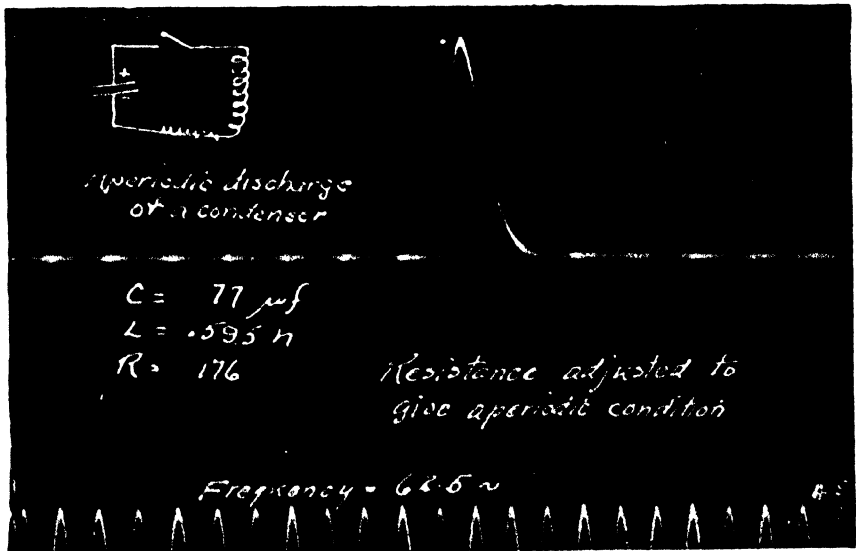 +
Aperiodic discharge
of a condenser
C = 77 μf
L = .595 h
R = 176
Resistance adjusted to
give aperiodic condition
Freqkency = 62.5 ~